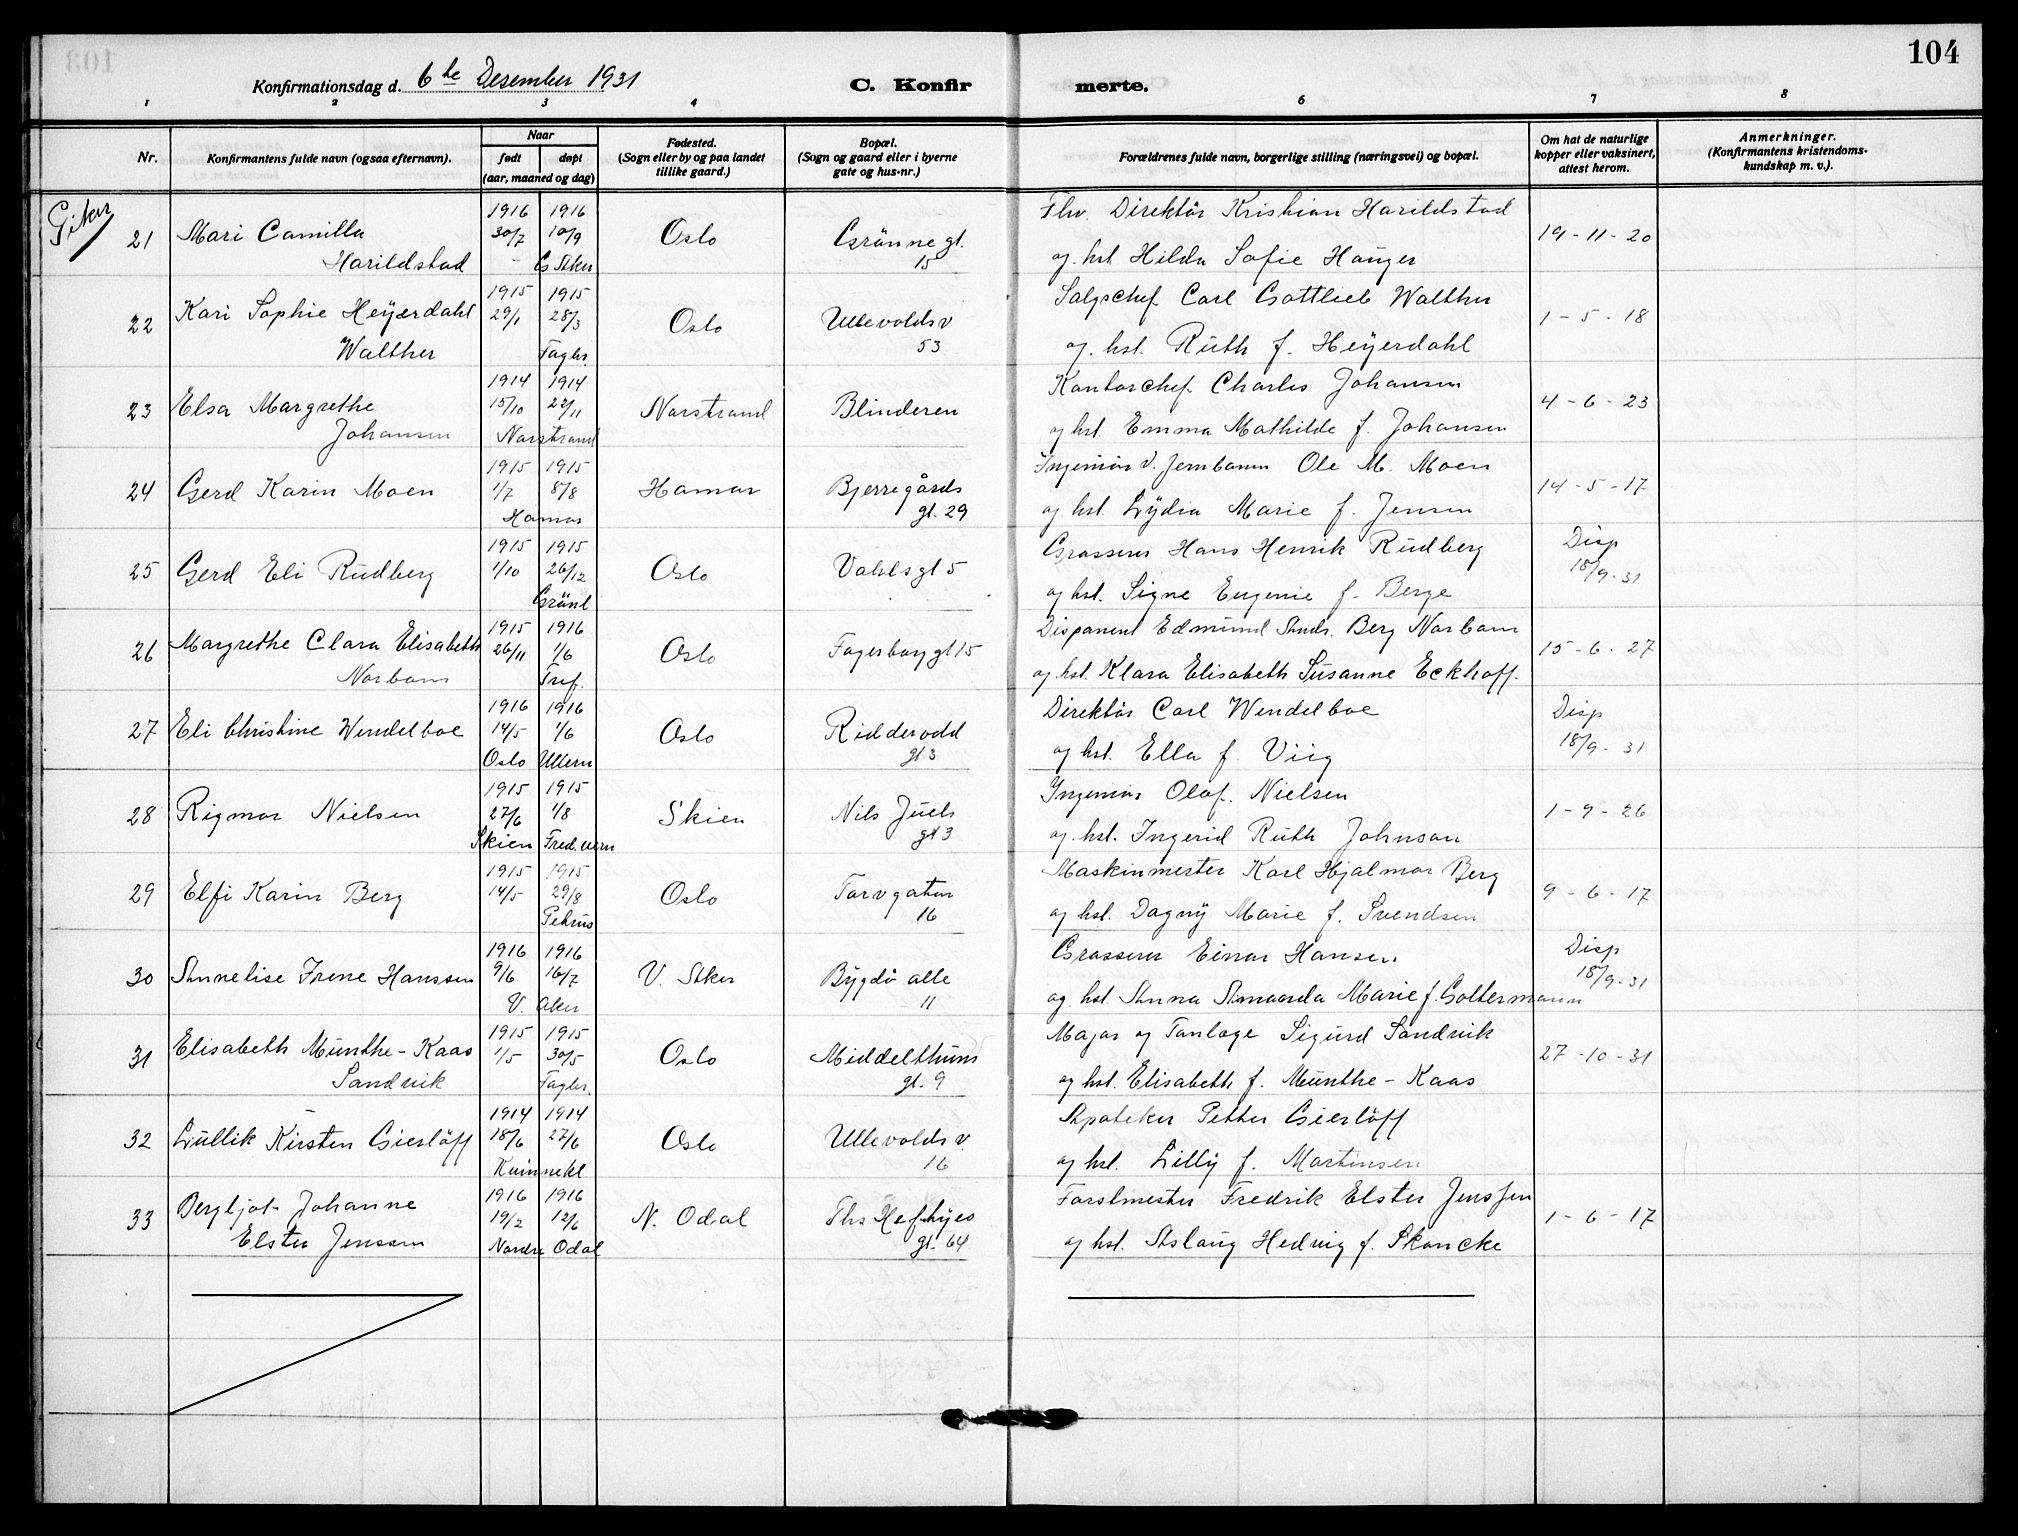 104
Konfirmationsdag d. 6te Desember 1931
C. Konfirmerte.
1 2 3 4 5 6 7 8
Nr.
Konfirmantens fulde navn (ogsaa efternavn).
Naar
født døpt
(aar, maaned og dag)
Fødested.
(Sogn eller by og paa landet
tillike gaard.)
Bopæl.
(Sogn og gaard eller i byerne
gate og hus-nr.)
Forældrenes fulde navn, borgerlige stilling (næringsvei) og bopæl.
Om hat de naturlige
kopper eller vaksinert,
attest herom.
Anmerkninger.
(Konfirmantens kristendoms-
kundskap m. v.).
Piker
21 Mari Camilla Harildstad 1916 30/7 1916 10/9 G Aker Oslo Grønne gt. 15
Fhv. Direktör Kristian Harildstad
og hst Hilda Sofie Hauger
19-11-20
22 Kari Sophie Heyerdahl Walther 1915 29/1 1915 28/3 Fagbr. Oslo Ullevoldsv 53
Salgschef Carl Gottlieb Walther
og hst. Ruth f. Heyerdahl
1-5-18
23 Elsa Margrethe Johansen 1914 15/10 1914 22/11 Norstrand Norstrand Blinderen
Kontorchef Charles Johansen
og hst. Emma Mathilde f. Johansen
4-6-23
24 Gerd Karin Moen 1915 1/7 1915 8/8 Hamar Hamar Bjerregårds gt. 29
Ingeniör v. Jernbanen Ole M. Moen
og hst. Lydia Marie f. Jensen
14-5-17
25 Gerd Eli Rudberg 1915 1/10 1915 26/12 Grönl Oslo Vahlsgt 5
Grosserer Hans Henrik Rudberg
og hst. Signe Eugenie f. Berge
Disp 18/9-31
26 Margrethe Clara Elisabeth Norbom 1915 26/11 1916 1/6 Tref. Oslo Fagerborggt 15
Disponent Edmund Andr. Berg Norbom
og hst. Klara Elisabeth Susanne Eckhoff.
15-6-27
27 Eli Christine Wendelboe 1916 14/5 1916 1/6 Oslo Ullern Oslo Riddervold gt 3
Direktör Carl Wendelboe
og hst. Ella f. Viig
Disp 18/9-31
28 Rigmor Nielsen 1915 27/6 1915 1/8 Skien Fred.vern Skien Nils Juels gt 3
Ingeniör Olaf Nielsen
og hst. Ingerid Ruth Johnson
1-9-26
29 Elfi Karin Berg 1915 14/5 1915 29/8 Petrus Oslo Torvgaten 16
Maskinmester Karl Hjalmar Berg
og hst. Dagny Marie f. Svendsen
9-6-17
30 Annelise Irene Hanssen 1916 9/6 1916 16/7 V. Aker V. Aker Bygdö alle 11
Grosserer Einar Hansen.
og hst. Anna Amanda Marie f. Goltermann
Disp 18/9-31
31 Elisabeth Munthe-Kaas Sandvik 1915 1/5 1915 30/5 Fagbr. Oslo Middelthuns gt. 9
Major og Tanlæge Sigurd Sandvik
og hst. Elisabeth f. Munthe-Kaas
27-10-31
32 Lullik Kirsten Gierlöff 1914 18/6 1914 27/6 Kvinnekl Oslo Ullevoldsv. 16
Apoteker Petter Gierlöff
og hst. Lilly f. Martinsen
33 Bergljot Johanne Elster Jenssen 1916 19/2 1916 12/6 Nordre Odal N. Odal Ths Heftyes gt. 64
Forstmester Fredrik Elster Jenssen
og hst. Aslaug Hedvig f. Skancke
1-6-17